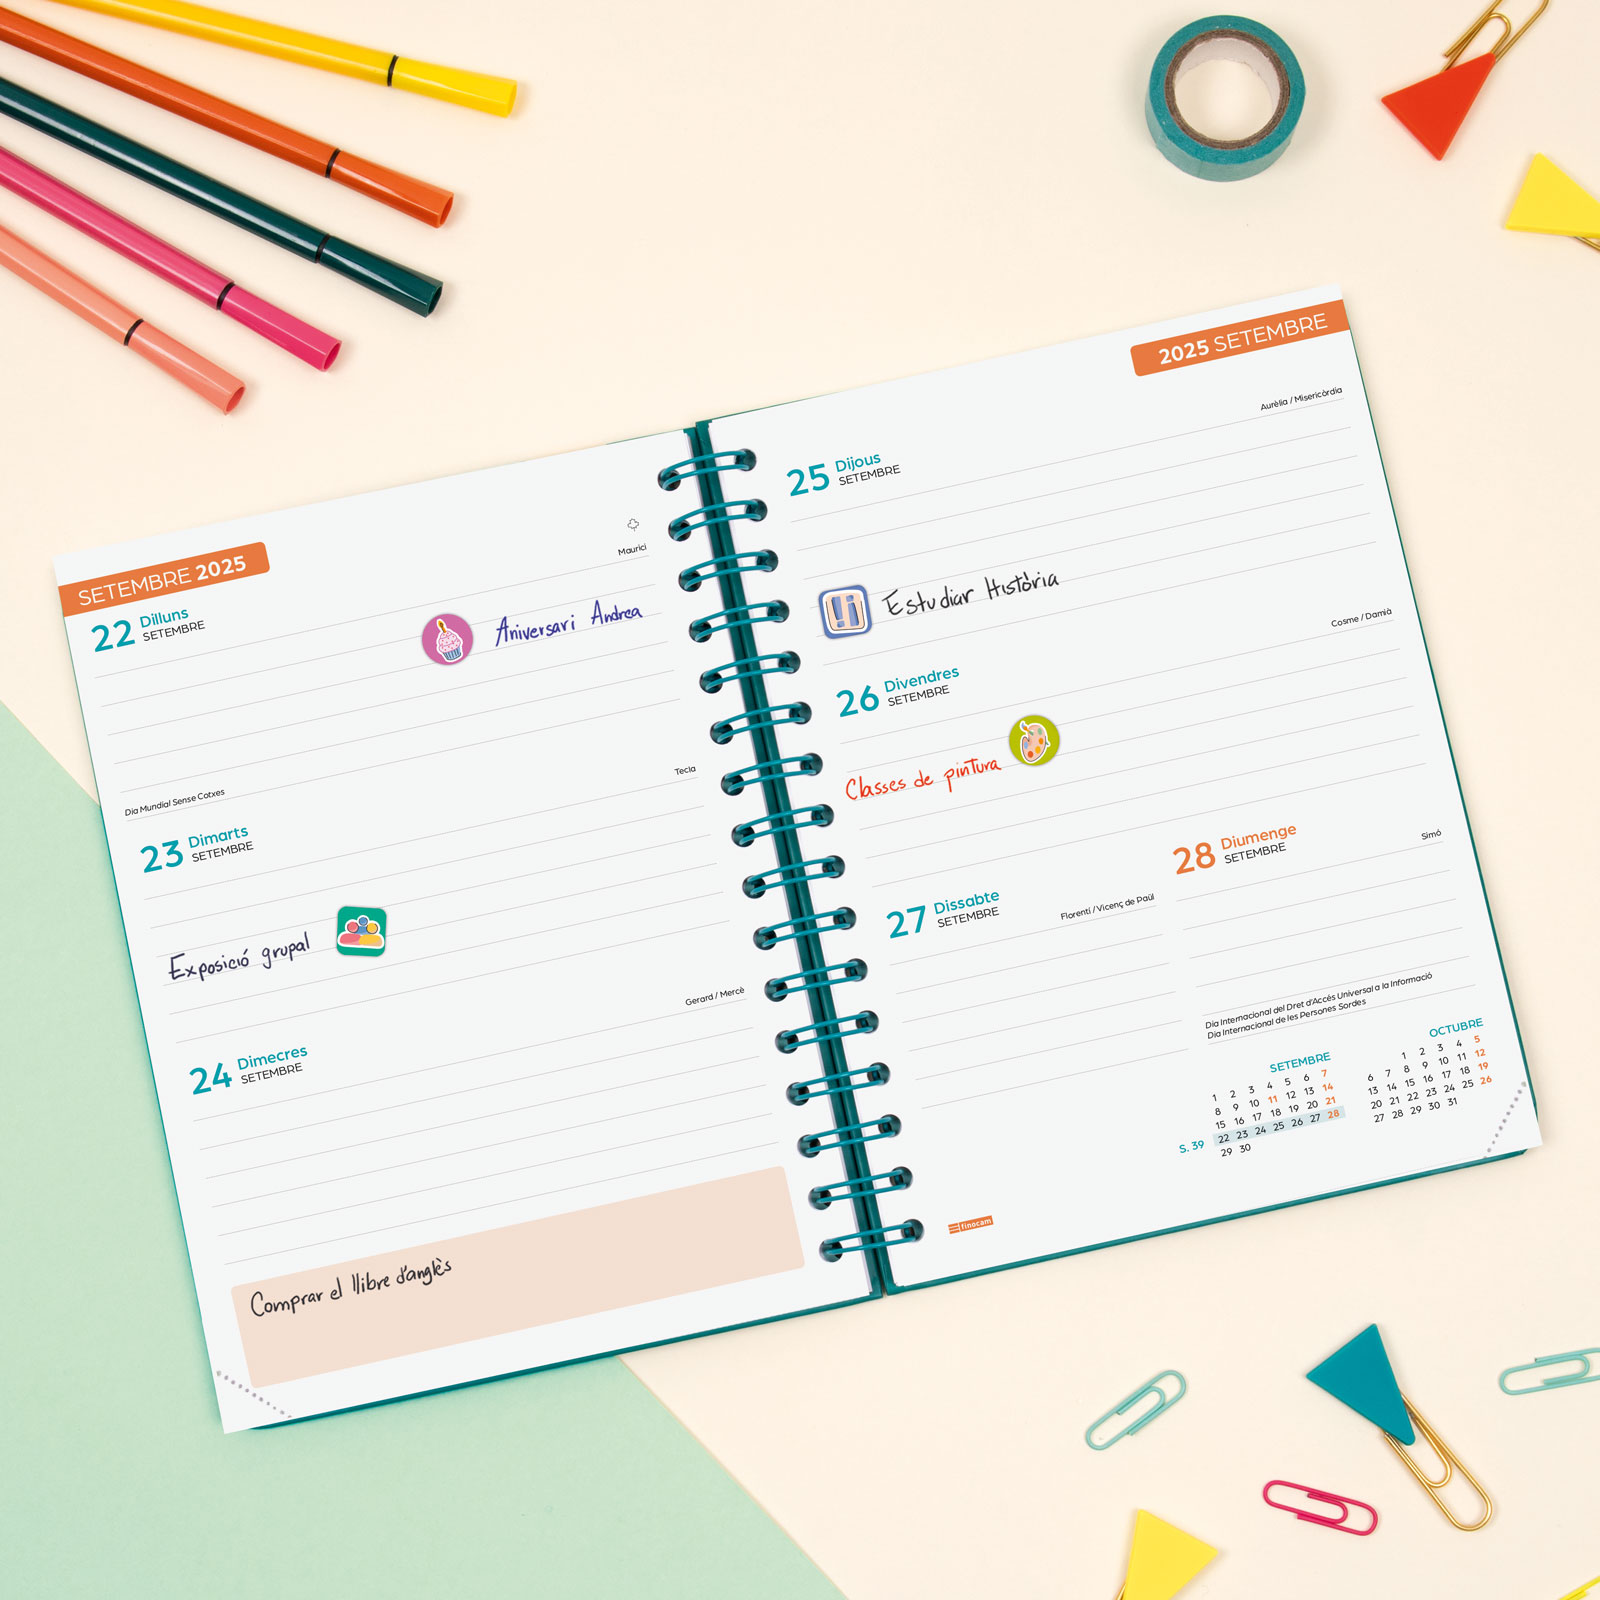 SETEMBRE 2025
22 Dilluns
SETEMBRE
Maurici
Aniversari Andrea
Dia Mundial Sense Cotxes
23 Dimarts
SETEMBRE
Tecla
Exposició grupal
24 Dimecres
SETEMBRE
Gerard / Mercè
Comprar el llibre d'anglès
2025 SETEMBRE
25 Dijous
SETEMBRE
Aurèlia / Misericòrdia
Estudiar Història
26 Divendres
SETEMBRE
Cosme / Damià
Classes de pintura
27 Dissabte
SETEMBRE
Florentí / Vicenç de Paül
28 Diumenge
SETEMBRE
Simó
Dia Internacional del Dret d'Accés Universal a la Informació
Dia Internacional de les Persones Sordes
SETEMBRE
1 2 3 4 5 6 7
8 9 10 11 12 13 14
15 16 17 18 19 20 21
S. 39 22 23 24 25 26 27 28
29 30
OCTUBRE
1 2 3 4 5
6 7 8 9 10 11 12
13 14 15 16 17 18 19
20 21 22 23 24 25 26
27 28 29 30 31
finocam